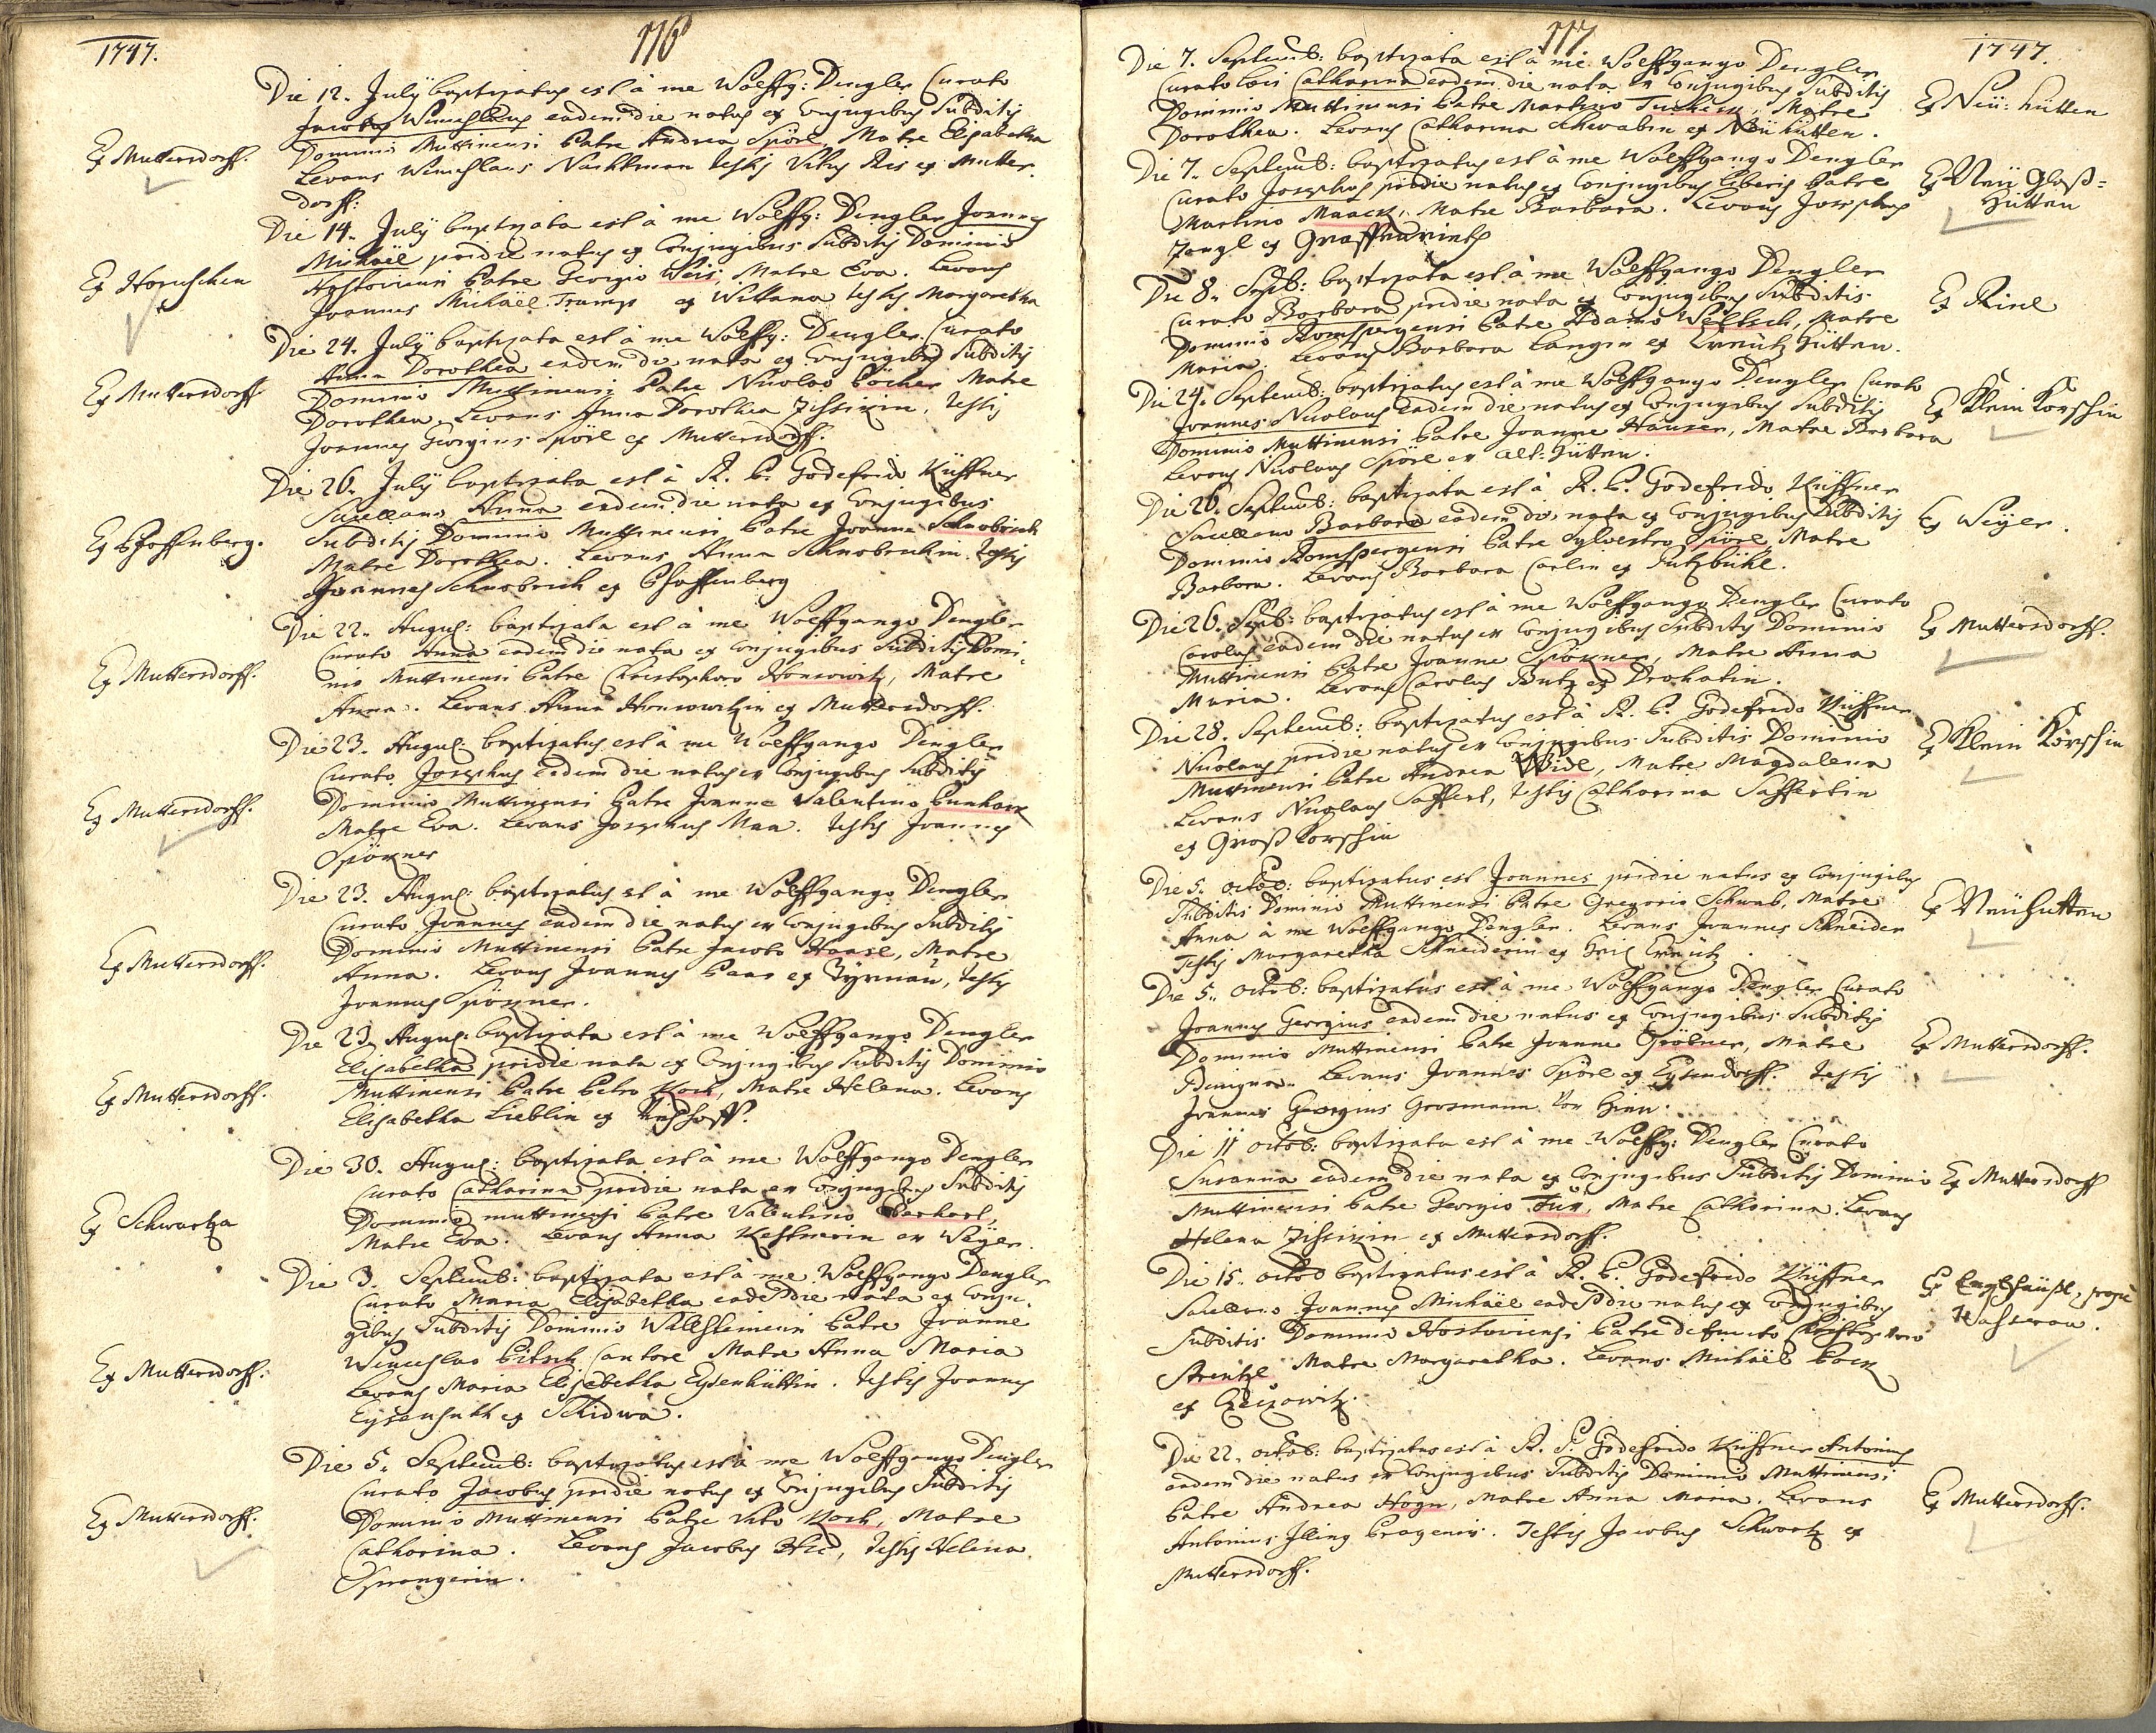 1747.
116
Die 12. July baptizatus est à me Wolffg: Dengler Curato
Jacobus Wenceslaus eadem die natus ex Conjugibus Subditis
Ex Muttersdorff.
Dominio Muttinensi Patre Andrea Spörl, Matre Elisabetha
Levans Wenceslaus Nachtman testis Vitus Ries ex Mutters
dorff:
Die 14. July baptizata est à me Wolffg: Dengler Joannes
Michaël pridie natus ex Conjugibus Subditis Dominio
Ex Horuschen
Hostoviensi Patre Georgio Weis, Matre Eva. Levans
Joannes Michaël Tramp ex Wittana testis Margaretha
Die 24. July baptizata est à me Wolffg: Dengler Curato
Anna Dorothea eadem die nata ex Conjugibus Subditis
Ex Muttersdorff
Dominio Muttinensi Patre Nicolao Böcher Matre
Dorothea. Levans Anna Dorothea Zissizin, testis
Joannes Georgius Spörl ex Muttersdorff.
Die 26. July baptizata est à R. P. Godefrido Küffner
Sacellano Anna eadem die nata ex Conjugibus
Subditis Dominio Muttinensi Patre Joanne Schnobrich
Ex Pfaffenberg.
Matre Dorothea. Levans Anna Schnobrichin testis
Joannes Schnobrich ex Pfaffenberg
Die 22. August: baptizata est à me Wolffgango Dengler
Curato Anna eadem die nata ex Conjugibus Subditis Domi-
Ex Muttersdorff.
nio Muttinensi Patre Christophoro Honsowitz, Matre
Anna. Levans Anna Honsowitzin ex Muttersdorff.
Die 23. August: baptizatus est à me Wolffgango Dengler
Curato Josephus eadem die natus ex Conjugibus Subditis
Ex Muttersdorff.
Dominio Muttinensi Patre Joanne Valentino
Matre Eva. Levans Josephus Maa. testis Joannes
Spöxner
Die 23. August: baptizatus est à me Wolffgango Dengler
Curato Joannes eadem die natus ex Conjugibus Subditis
Ex Muttersdorff.
Dominio Muttinensi Patre Jacobo Haasl, Matre
Anna. Levans Joannes Paar ex Tyrnau, testis
Joannes Spöxner.
Die 23 August: baptizata est à me Wolffgango Dengler
Elisabetha pridie nata ex Conjugibus Subditis Dominio
Ex Muttersdorff.
Muttinensi Patre Petro Koch, Matre Helena. Levans
Elisabetha Lieblin ex
Die 30. August: baptizata est à me Wolffgango Dengler
Curato Catharina pridie nata ex Conjugibus Subditis
Ex Schwartza
Dominio muttinensi Patre Valentino
Matre Eva. Levans Anna Kestnerin ex Weijer.
Die 3. Septemb: baptizata est à me Wolffgango Dengler
Curato Maria Elisabetha eadem die nata ex Conju-
gibus Subditis Dominio Patre Joanne
Ex Muttersdorff.
Wenceslao Pitsch Cantore Matre Anna Maria
Levans Maria Elisabetha Eysenhüttin. testis Joannes
Eysenhutt ex Schidwa.
Die 5. Septemb: baptizatus est à me Wolffgango Dengler
Curato Jacobus pridie natus ex Conjugibus Subditis
Ex Muttersdorff.
Dominio Muttinensi Patre Vito Koch, Matre
Catharina. Levans Jacobus testis Helena
Sprangerin.
117
1747.
Die 7. Septemb: baptizata est à me Wolffgango Dengler
Curato Loci Catharina eadem die nata ex Conjugibus Subditis
Ex Neü: hütten
Dominio Muttinensi Patre Martino Matre
Dorothea. Levans Catharina Schwabin ex Neühütten.
Die 7. Septemb: baptizatus est à me Wolffgango Dengler
Curato Josephus pridie natus ex Conjugibus liberis Patre
Ex Neü Glaß=
hütten
Martino Maack, Matre Barbara. Levans Josephus
Zangl ex
Die 8. Septb: baptizata est à me Wolffgango Dengler
Curato Barbara pridie nata ex Conjugibus Subditis
Ex Rinl
Dominio Ronspergensi Patre Adamo Weltsch, Matre
Maria. Levans Barbara Langin ex Creütz hütten.
Die 24. Septemb: baptizatus est à me Wolffgango Dengler Curato
Joannes Nicolaus eadem die natus ex Conjugibus Subditis
Ex Klein Korschin
Dominio Muttinensi Patre Joanne Hauser, Matre Barbara
Levans Nicolaus Spörl ex alt-hütten.
Die 26. Septemb: baptizata est à R. P. Godefrido Küffner
Sacellano Barbara eadem die nata ex Conjugibus Subditis
Ex Weijer.
Dominio Ronspergensi Patre Sylvestro Spörl Matre
Barbara. Levans Barbara Carlin ex Putzbühl.
Die 26. Septb: baptizatus est à me Wolffgango Dengler Curato
Carolus eadem die natus ex Conjugibus Subditis Dominio
Ex Muttersdorff.
Muttinensi Patre Joanne Spöxner, Matre Anna
Maria. Levans Carolus Butz ex Drohatin.
Die 28. Septemb: baptizatus est à R. P. Godefrido Küffner
Nicolaus pridie natus ex Conjugibus Subditis Dominio
Ex Klein Korschin
Muttinensi Patre Andrea Widl, Matre Magdalena
Levans Nicolaus Saffert, testis Catharina Saffertin
ex Groß Korschin
Die 5. octob: baptizatus est Joannes pridie natus ex Conjugibus
Subditis Dominio Muttinensi Patre Gregorio Schwab, Matre
Ex Neühutten
Anna à me Wolffgango Dengler. Levans Joannes Schneider
Testis Margaretha Schneiderin ex Heil Creutz
Die 5. octob: baptizatus est à me Wolffgango Dengler Curato
Joannes Georgius eadem die natus ex Conjugibus Subditis
Ex Muttersdorff.
Dominio Muttinensi Patre Joanne Gröbner, Matre
Benigna. Levans Joannes Spörl ex Eysendorff testis
Joannes Georgius Grosmann
Die 11 octob: baptizata est à me Wolffg: Dengler Curato
Susanna eadem die nata ex Conjugibus Subditis Dominio
Ex Muttersdorff
Muttinensi Patre Georgio Fux, Matre Catharina. Levans
Helena Zissizin ex Muttersdorff.
Die 15. octob baptizatus est à R. P. Godefrido Küffner
Sacellano Joannes Michaël eadem die natus ex Conjugibus
Ex Englhäusl, prope
Wasserau.
Subditis Dominio Hostoviensi Patre defuncto Christophoro
Strintzl Matre Margaretha. Levans Michaël Pock
ex
Die 22. octob: baptizatus est à R. P. Godefrido Küffner Antonius
eadem die natus ex Conjugibus Subditis Dominio Muttinensi
Ex Muttersdorff.
Patre Andrea Hogn, Matre Anna Maria. Levans
Antonius Illing Pragensis. Testis Jacobus Schwartz ex
Muttersdorff.